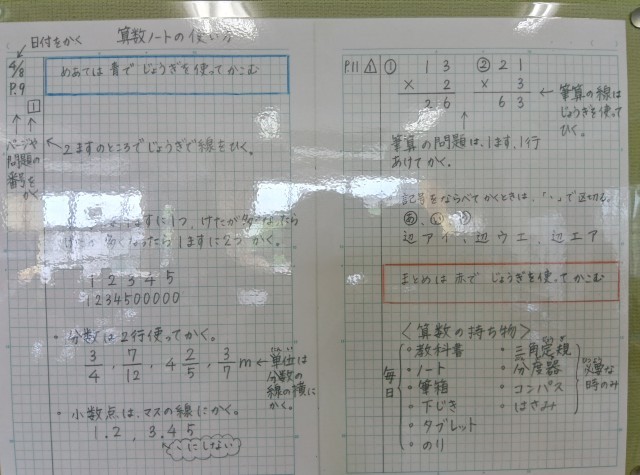 日付をかく
算数ノートの使い方
4/8
P.9
1
めあては青でじょうぎを使ってかこむ
ページや
問題の
番号を
かく
2ますのところでじょうぎで線をひく。
ますに1つ、けたが多くなったら
多くなったら1ますに2つかく。
1 2 3 4 5
1234500000
・分数は2行使ってかく。
3/4 , 7/12 , 4 2/5 , 3/7 m
単位は
分数の
線の横に
かく。
・小数点は、マスの線にかく。
1.2 , 3.45
ここにしない
P.11
1
① 13 × 2 26
② 21 × 3 63
筆算の線は
じょうぎを使って
ひく。
筆算の問題は、1ます、1行
あけてかく。
記号をならべてかくときは、「、」で区切る。
あ、い、う
辺アイ、辺ウエ、辺エア
まとめは赤でじょうぎを使ってかこむ
<算数の持ち物>
毎日
・教科書
・ノート
・筆箱
・下じき
・タブレット
・のり
・三角定規
・分度器
・コンパス
・はさみ
必要な
時のみ